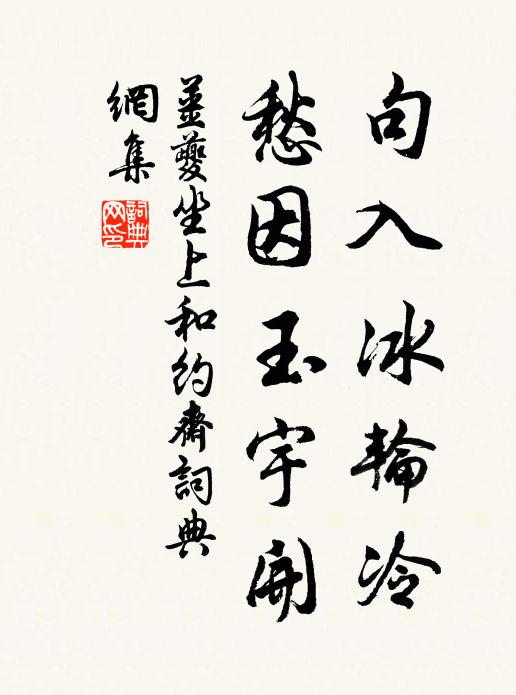 句入冰輪冷
愁因玉宇開
薑夔坐上和約齋詞典
網集
詞典網印